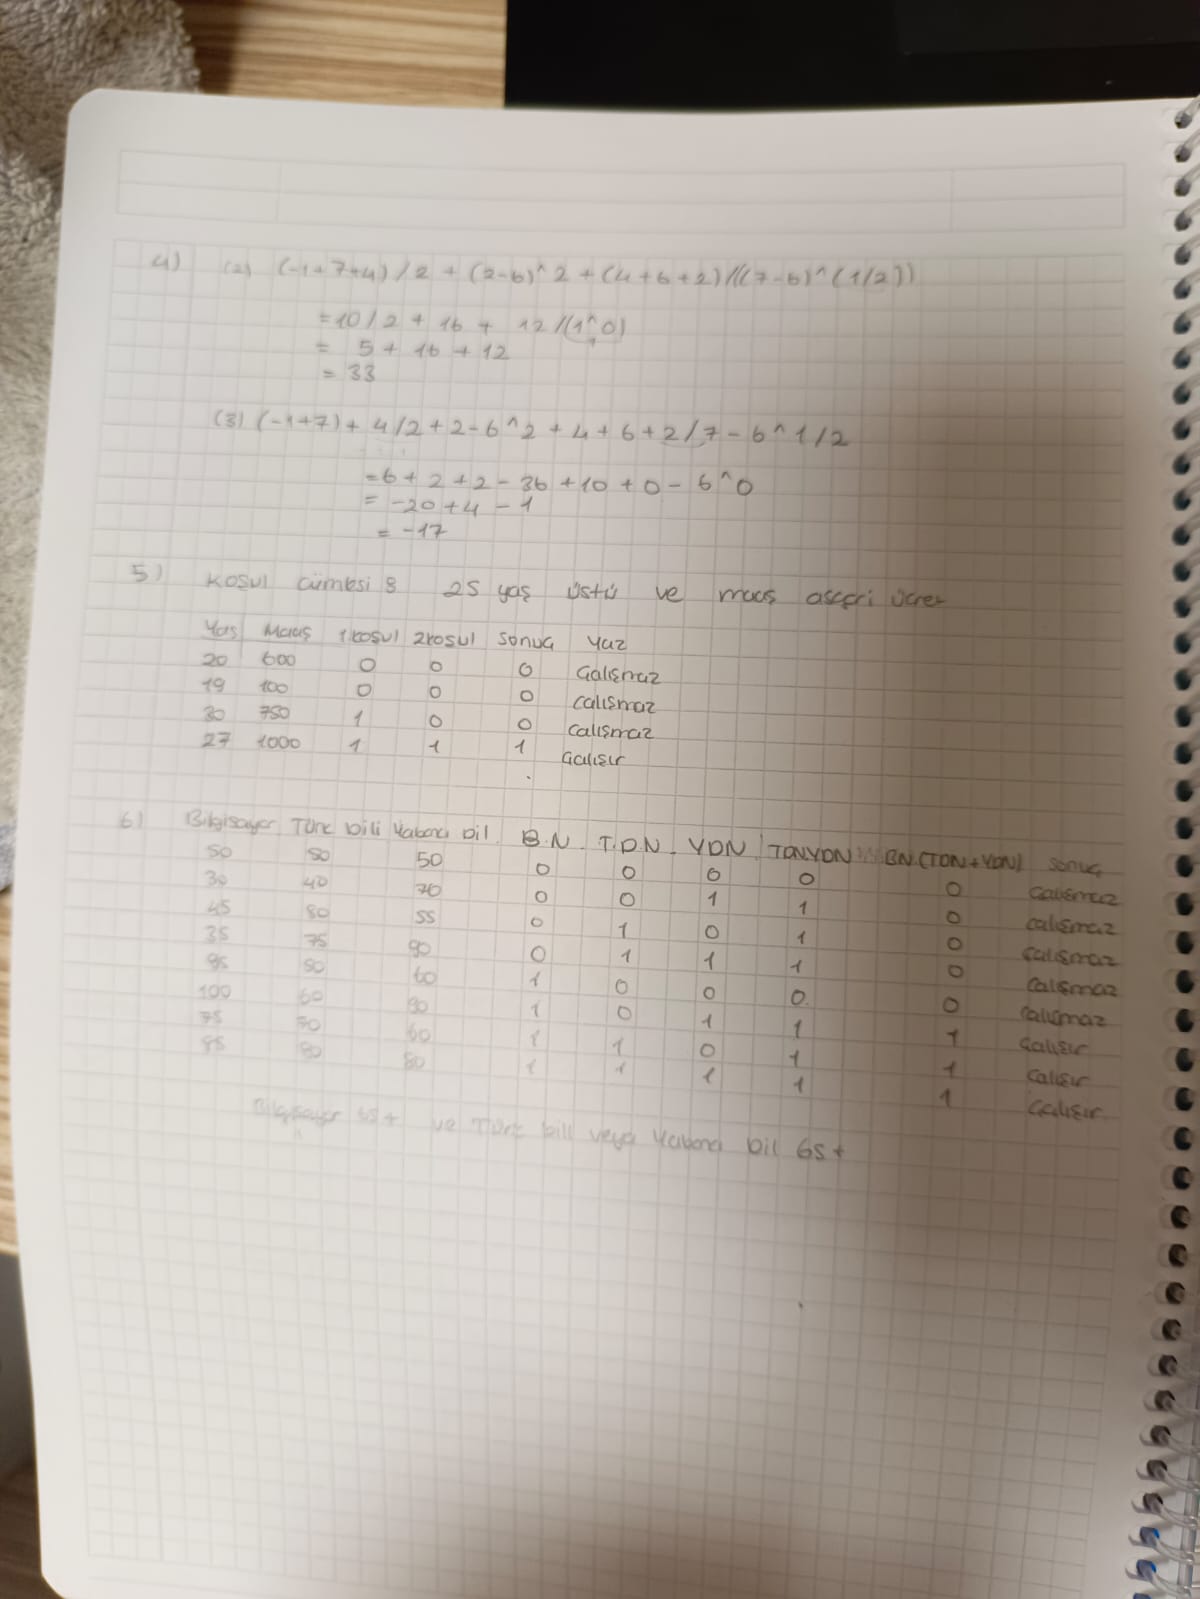 4) (2) (-1+7+4)/2 + (2-6)^2 + (4+6+2)/((7-6)^(1/2))
=10/2 + 16 + 12/(1^0)
= 5 + 16 + 12
= 33
(3) (-1+7) + 4/2+2-6^2+4+6+2/7-6^1/2
=6+2+2-36+10+0-6^0
= -20+4-1
= -17
5) Koşul cümlesi : 25 yaş üstü ve maaş asgari ücret
Yaş Maaş 1koşul 2koşul sonuç Yaz
20 600 0 0 0 Çalışmaz
19 100 0 0 0 Çalışmaz
30 750 1 0 0 Çalışmaz
27 1000 1 1 1 Çalışır
6) Bilgisayar Türk dili Yabancı dil B.N. T.D.N. YDN TDN.YDN BN.(TDN+YDN) sonuç
50 50 50 0 0 0 0 0 Çalışmaz
30 40 70 0 0 1 1 0 Çalışmaz
45 80 55 0 1 0 1 0 Çalışmaz
35 75 90 0 1 1 1 0 Çalışmaz
95 50 60 1 0 0 0 0 Çalışmaz
100 60 90 1 0 1 1 1 Çalışır
75 70 60 1 1 0 1 1 Çalışır
85 80 80 1 1 1 1 1 Çalışır
Bilgisayar 65+ ve Türk dili veya Yabancı dil 65+